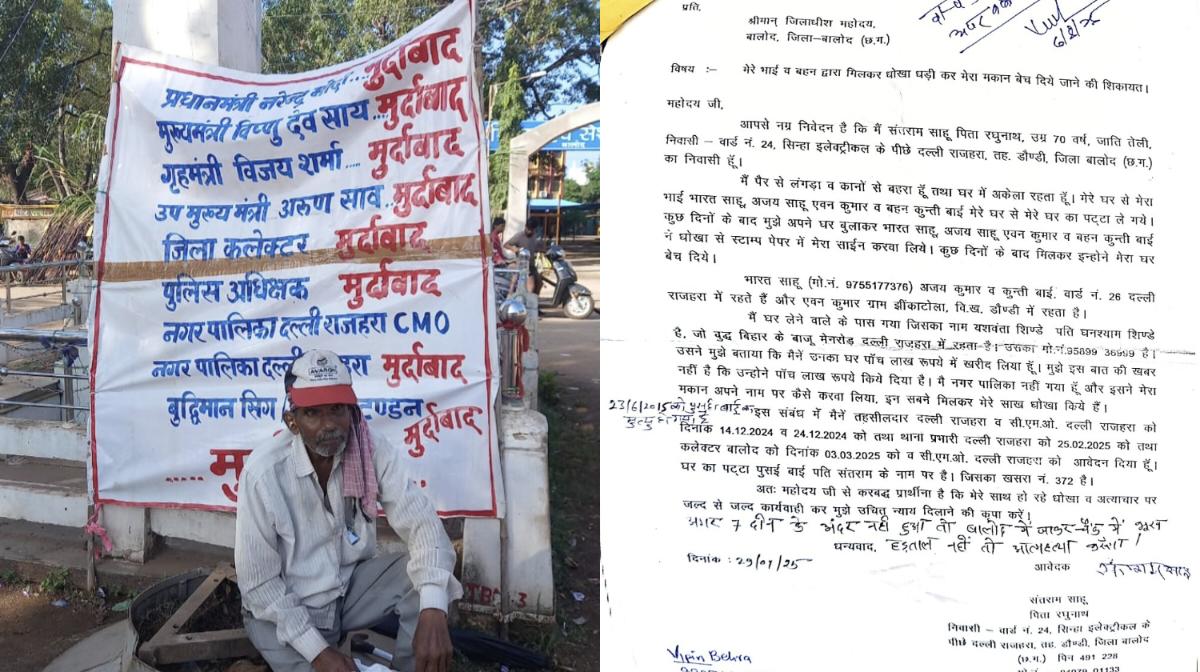 प्रधानमंत्री नरेन्द्र मोदी...मुर्दाबाद
मुख्यमंत्री विष्णु देव साय...मुर्दाबाद
गृहमंत्री विजय शर्मा....मुर्दाबाद
उप मुख्य मंत्री अरुण साव..मुर्दाबाद
जिला कलेक्टर मुर्दाबाद
पुलिस अधिक्षक मुर्दाबाद
नगर पालिका दल्ली राजहरा CMO
नगर पालिका दल्ली मुर्दाबाद
बुद्धिमान सिंग टण्डन
मुर्दाबाद
.....
AVARO
बालोद
TB 3
प्रति,
श्रीमान् जिलाधीश महोदय,
बालोद, जिला–बालोद (छ.ग.)
विषय :– मेरे भाई व बहन द्वारा मिलकर धोखा धड़ी कर मेरा मकान बेच दिये जाने की शिकायत।
महोदय जी,
आपसे नम्र निवेदन है कि मैं संतराम साहू पिता रघुनाथ, उम्र 70 वर्ष, जाति तेली,
निवासी – वार्ड नं. 24, सिन्हा इलेक्ट्रीकल के पीछे दल्ली राजहरा, तह. डौण्डी, जिला बालोद (छ.ग.)
का निवासी हूँ।
मैं पैर से लंगड़ा व कानों से बहरा हूँ तथा घर में अकेला रहता हूँ। मेरे घर से मेरा
भाई भारत साहू, अजय साहू एवन कुमार व बहन कुन्ती बाई मेरे घर से मेरे घर का पट्टा ले गये।
कुछ दिनों के बाद मुझे अपने घर बुलाकर भारत साहू, अजय साहू एवन कुमार व बहन कुन्ती बाई
नं धोखा से स्टाम्प पेपर में मेरा साईन करवा लिये। कुछ दिनों के बाद मिलकर इन्होने मेरा घर
बेच दिये।
भारत साहू (मो.नं. 9755177376) अजय कुमार व कुन्ती बाई, वार्ड नं. 26 दल्ली
राजहरा में रहते हैं और एवन कुमार ग्राम झींकाटोला, वि.ख. डौण्डी में रहता है।
मैं घर लेने वाले के पास गया जिसका नाम यशवंता शिण्डे पति घनश्याम शिण्डे
है, जो बुद्ध बिहार के बाजू मेनरोड दल्ली राजहरा में रहता है। उसका मो.नं.95899 36999 है।
उसने मुझे बताया कि मैनें उनका घर पाँच लाख रूपये में खरीद लिया हूँ। मुझे इस बात की खबर
नहीं है कि उन्होने पाँच लाख रूपये किये दिया है। मै नगर पालिका नहीं गया हूँ और इसने मेरा
मकान अपने नाम पर कैसे करवा लिया, इन सबने मिलकर मेरे साख धोखा किये हैं।
23/6/2015 को
इस संबंध में मैनें तहसीलदार दल्ली राजहरा व सी.एम.ओ. दल्ली राजहरा को
दिनांक 14.12.2024 व 24.12.2024 को तथा थाना प्रभारी दल्ली राजहरा को 25.02.2025 को तथा
कलेक्टर बालोद को दिनांक 03.03.2025 को व सी.एम.ओ. दल्ली राजहरा को आवेदन दिया हूँ।
घर का पट्टा पुसई बाई पति संतराम के नाम पर है। जिसका खसरा नं. 372 है।
अतः महोदय जी से करबद्ध प्रार्थीना है कि मेरे साथ हो रहे धोखा व अत्याचार पर
जल्द से जल्द कार्यवाही कर मुझे उचित् न्याय दिलाने की कृपा करें।
अगर 7 दीन के अंदर नही हुआ तो बालोद में जाकर भूख
धन्यवाद, हड़ताल नहीं तो आत्महत्या करूंगा।
दिनांक : 29/01/25
आवेदक
संतराम साहू
पिता रघुनाथ
निवासी – वार्ड नं. 24, सिन्हा इलेक्ट्रीकल के
पीछे दल्ली राजहरा, तह. डौण्डी, जिला बालोद
(छ.ग.) पिन 491 228
Vipin Behra